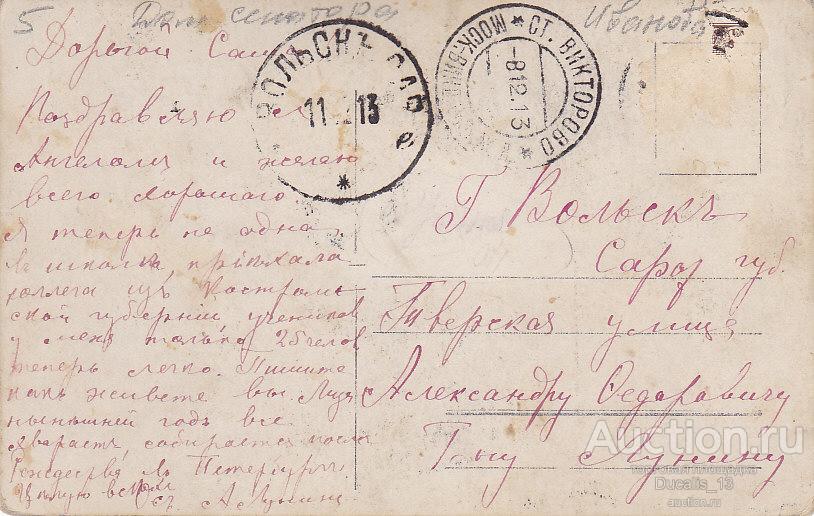 5 Дом сенатора Иванова
Дорогой Саша
Поздравляю с
Ангелом и желаю
всего хорошаго
Я теперь не одна,
въ школѣ, пріѣхала
коллега изъ Костром-
ской губерніи учениковъ
у меня только 25 челов
теперь легко. Пишите
какъ живете вы. Лиза
нынѣшней годъ все
хвараетъ собирается после
Рождества въ Петербургъ
Цѣлую всѣхъ
А Лунина
ВОЛЬСКЪ САР.
11 13
СТ. ВИКТОРОВО
МОСК.
-8.12.13
Г. Вольскъ
Сарат губ.
Тверская улица
Александру Федоровичу
Г-ну Лунину
Auction.ru
торговая площадка
Ducalis_13
auction.ru